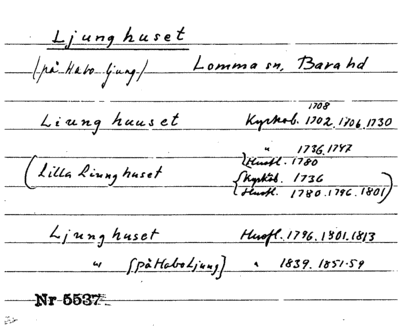 Ljunghuset
(på Habo Ljung) Lomma sn, Bara hd
1708
Liung huuset Kyrkob. 1702, 1706, 1730
" 1736, 1747
Husfl. 1780
(Lilla Liunghuset Kyrkob. 1736
Husfl. 1780. 1796. 1801)
Ljunghuset Husfl. 1796. 1801. 1813
" [på Habo Ljung] " 1839. 1851-59
Nr 5537